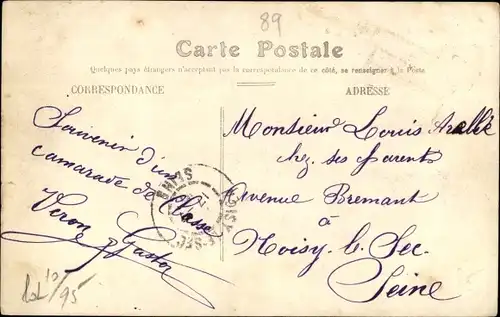 89
Carte Postale
Quelques pays étrangers n'acceptent pas la correspondance de ce côté, se renseigner à la Poste
CORRESPONDANCE
ADRESSE
Souvenir d'un
camarade de Classe
Veron Gaston
Monsieur Louis
chez ses parents
Avenue Bremant
à
Noisy-le-Sec
Seine
NOISY-LE-SEC
95